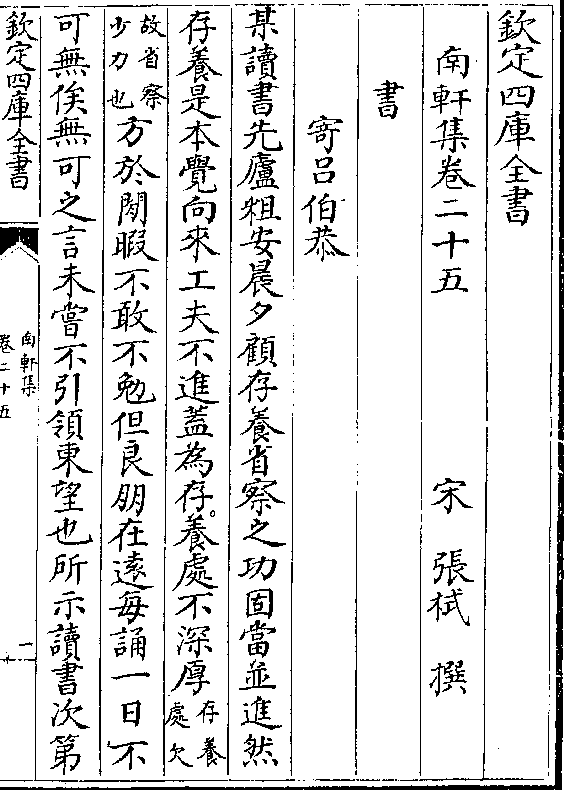 欽定四庫全書
南軒集卷二十五
宋 張栻 撰
書
寄吕伯恭
某讀書先廬粗安晨夕顧存養省察之功固當並進然
存養是本覺向來工夫不進蓋為存養處不深厚存養處欠
故省察少力也方於閒暇不敢不勉但良朋在遠每誦一日不
可無俟無可之言未嘗不引領東望也所示讀書次第
欽定四庫全書
南軒集
卷二十五
一